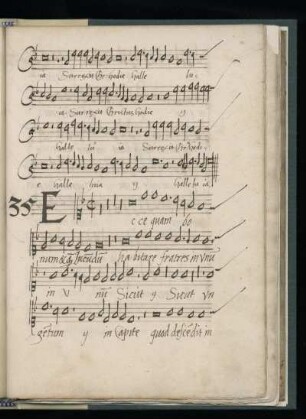 ia Surrexit Christus hodie halle lu
ia Surrexit Christus hodie ij
halle lu ia Surrexit Christ hodi
e halle luia ij halle lu ia
35
E cce quam bo
num & q iucundū habitare fratres in vnū
in v nū Sicut ij Sicut vn
gētum ij in capite quod descēdit in